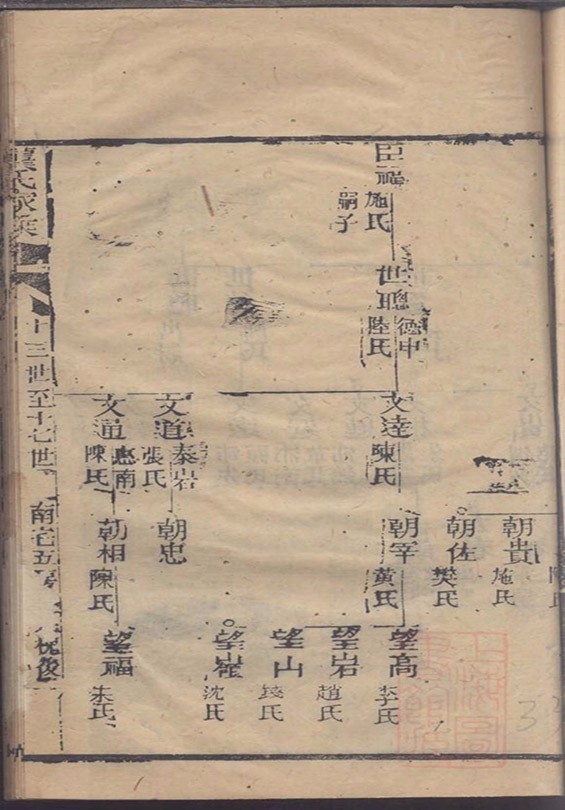 臣福
施氏
嗣子
世聰
德中
陸氏
文達
陳氏
文道
泰岩
張氏
文通
惠南
陳氏
朝貴
施氏
朝佐
樊氏
朝宰
黃氏
朝忠
朝相
陳氏
望高
李氏
望岩
趙氏
望山
錢氏
望嶺
沈氏
望福
朱氏
龔氏家乘
十三世至十七世
南宅五房
3